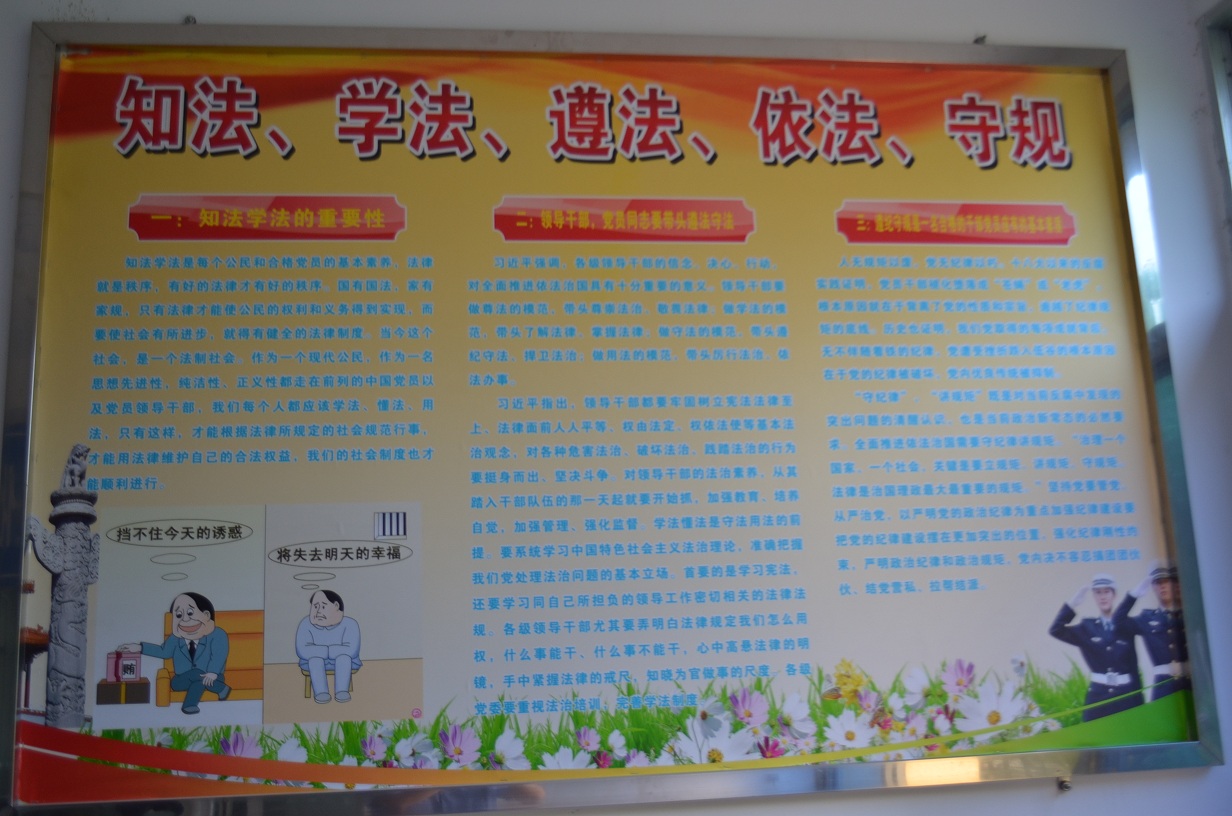 知法、学法、遵法、依法、守规
一：知法学法的重要性
知法学法是每个公民和合格党员的基本素养，法律
就是秩序，有好的法律才有好的秩序。国有国法，家有
家规，只有法律才能使公民的权利和义务得到实现，而
要使社会有所进步，就得有健全的法律制度。当今这个
社会，是一个法制社会。作为一个现代公民，作为一名
思想先进性、纯洁性、正义性都走在前列的中国党员以
及党员领导干部，我们每个人都应该学法、懂法、用
法，只有这样，才能根据法律所规定的社会规范行事，
才能用法律维护自己的合法权益，我们的社会制度也才
能顺利进行。
挡不住今天的诱惑
将失去明天的幸福
贿
二：领导干部，党员同志要带头遵法守法
习近平强调，各级领导干部的信念、决心、行动，
对全面推进依法治国具有十分重要的意义。领导干部要
做尊法的模范，带头尊崇法治、敬畏法律；做学法的模
范，带头了解法律、掌握法律；做守法的模范，带头遵
纪守法、捍卫法治；做用法的模范，带头厉行法治、依
法办事。
习近平指出，领导干部都要牢固树立宪法法律至
上、法律面前人人平等、权由法定、权依法使等基本法
治观念，对各种危害法治、破坏法治、践踏法治的行为
要挺身而出、坚决斗争。对领导干部的法治素养，从其
踏入干部队伍的那一天起就要开始抓，加强教育、培养
自觉，加强管理、强化监督。学法懂法是守法用法的前
提。要系统学习中国特色社会主义法治理论，准确把握
我们党处理法治问题的基本立场。首要的是学习宪法，
还要学习同自己所担负的领导工作密切相关的法律法
规。各级领导干部尤其要弄明白法律规定我们怎么用
权，什么事能干、什么事不能干，心中高悬法律的明
镜，手中紧握法律的戒尺，知晓为官做事的尺度。各级
党委要重视法治培训，完善学法制度
三：遵纪守规是一名合格的干部党员应有的基本素养
人无规矩不立，党无纪律不行。十八大以来的全面
实践证明，党员干部蜕化堕落成“苍蝇”或“老虎”，
根本原因就在于背离了党的性质和宗旨，逾越了纪律规
矩的底线。历史也证明，我们党取得的每项成就背后，
无不伴随着铁的纪律，党遭受挫折跌入低谷的根本原因
在于党的纪律被破坏，党内优良传统被抑制。
“守纪律”、“讲规矩”既是对当前反腐中发现的
突出问题的清醒认识，也是当前政治新常态的必然要
求。全面推进依法治国需要守纪律讲规矩。“治理一个
国家、一个社会，关键是要立规矩、讲规矩、守规矩。
法律是治国理政最大最重要的规矩。”坚持党要管党、
从严治党，以严明党的政治纪律为重点加强纪律建设要
把党的纪律建设摆在更加突出的位置，强化纪律刚性约
束，严明政治纪律和政治规矩，党内决不容忍搞团团伙
伙、结党营私、拉帮结派。